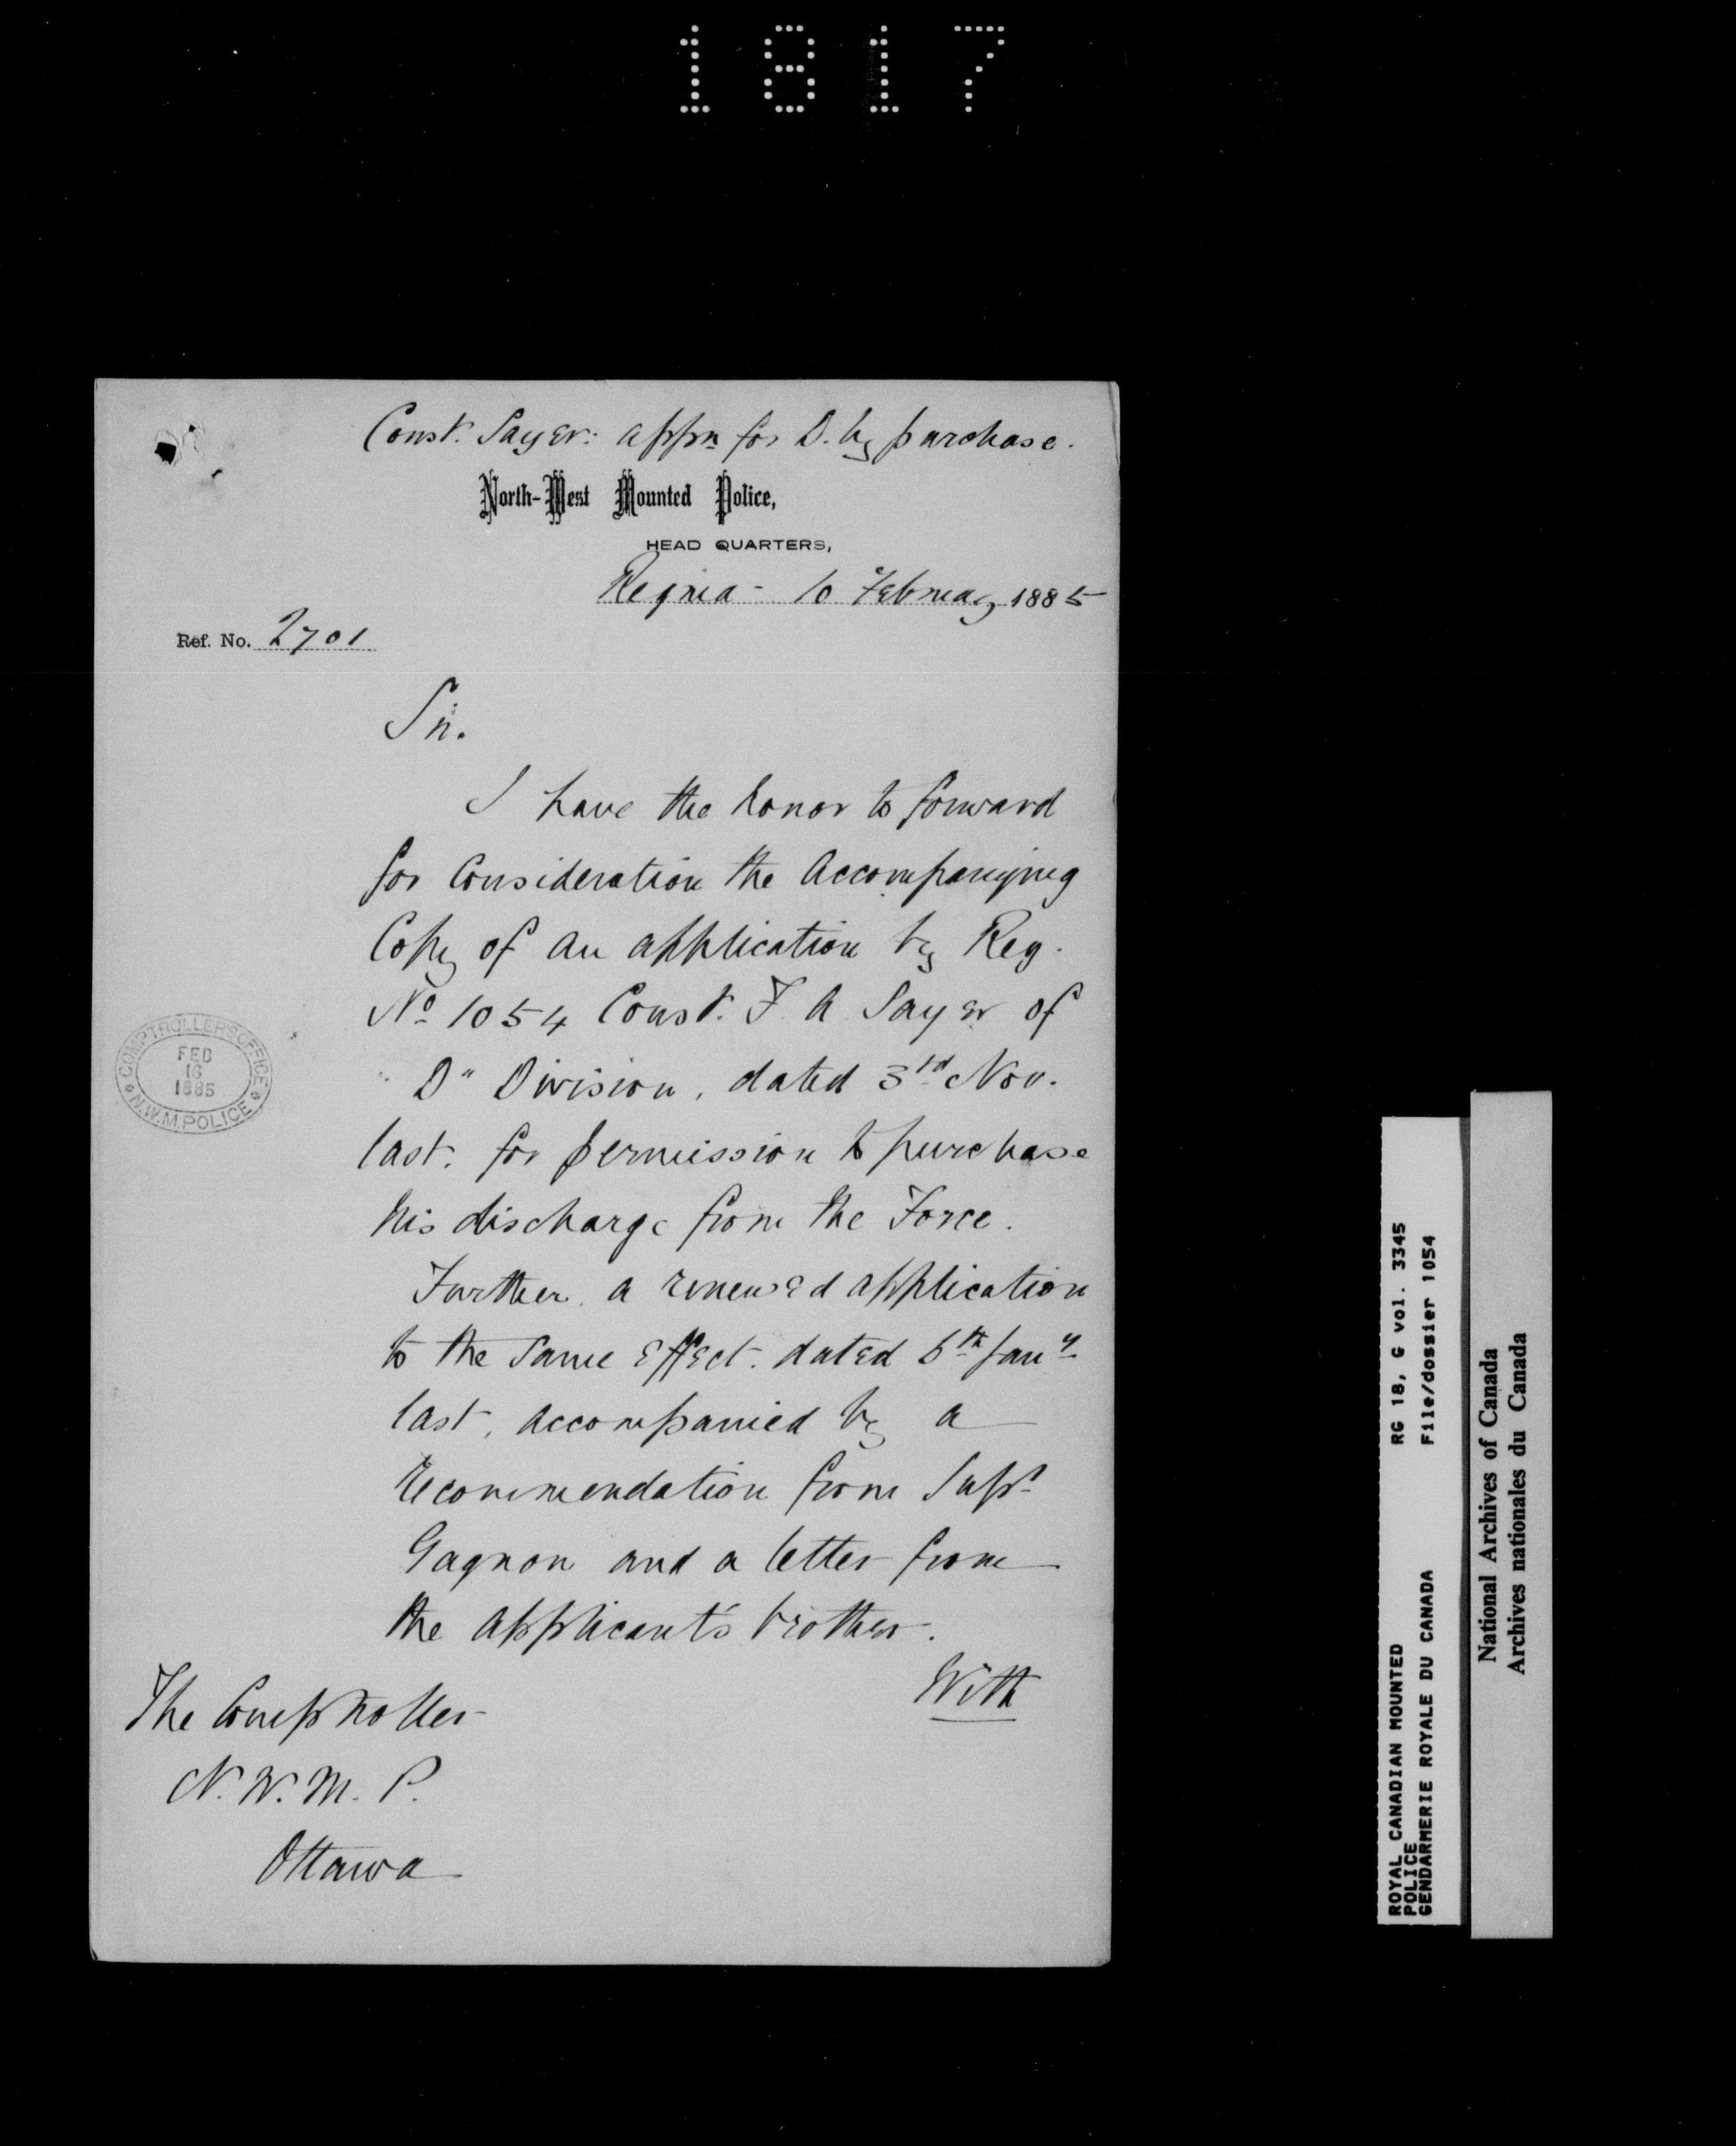 1817
Const. Sayer: appn for D. by purchase.
North-West Mounted Police,
HEAD QUARTERS,
Regina - 10 February 1885
Ref. No. 2701
Sir.
I have the honor to forward
for Consideration the Accompanying
Copy of an application by Reg.
No 1054 Const. F. A. Sayer of
"D" Division, dated 3rd Nov.
last. for permission to purchase
his discharge from the Force.
Further, a renewed application
to the same effect. dated 6th Jany
last, accompanied by a
recommendation from Supt
Gagnon and a letter from
the Applicant's brother.
With
The Comptroller
N. W. M. P.
Ottawa
COMPTROLLER'S OFFICE
FEB
16
1885
N.W.M. POLICE
ROYAL CANADIAN MOUNTED
POLICE
GENDARMERIE ROYALE DU CANADA
RG 18, G vol. 3345
File/dossier 1054
National Archives of Canada
Archives nationales du Canada